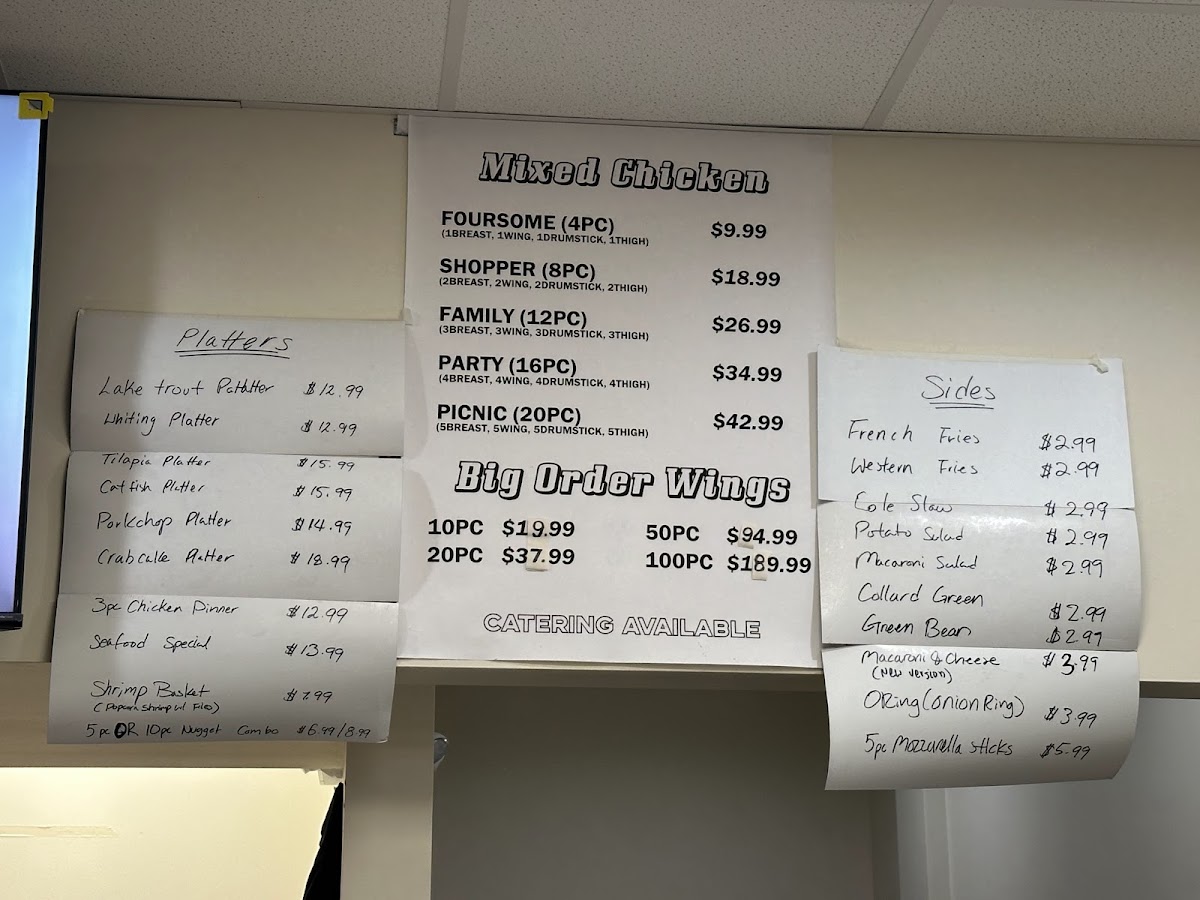 Platters
Lake trout Platter $12.99
Whiting Platter $12.99
Tilapia Platter $15.99
Catfish Platter $15.99
Porkchop Platter $14.99
Crabcake Platter $18.99
3pc Chicken Dinner $12.99
Seafood Special $13.99
Shrimp Basket $7.99
(Popcorn shrimp w/ Fries)
5pc OR 10pc Nugget Combo $6.99/8.99
Mixed Chicken
FOURSOME (4PC) $9.99
(1BREAST, 1WING, 1DRUMSTICK, 1THIGH)
SHOPPER (8PC) $18.99
(2BREAST, 2WING, 2DRUMSTICK, 2THIGH)
FAMILY (12PC) $26.99
(3BREAST, 3WING, 3DRUMSTICK, 3THIGH)
PARTY (16PC) $34.99
(4BREAST, 4WING, 4DRUMSTICK, 4THIGH)
PICNIC (20PC) $42.99
(5BREAST, 5WING, 5DRUMSTICK, 5THIGH)
Big Order Wings
10PC $19.99 50PC $94.99
20PC $37.99 100PC $189.99
CATERING AVAILABLE
Sides
French Fries $2.99
Western Fries $2.99
Cole Slaw $2.99
Potato Salad $2.99
Macaroni Salad $2.99
Collard Green $2.99
Green Bean $2.99
Macaroni & Cheese $3.99
(New version)
ORing (onion Ring) $3.99
5pc Mozzarella sticks $5.99